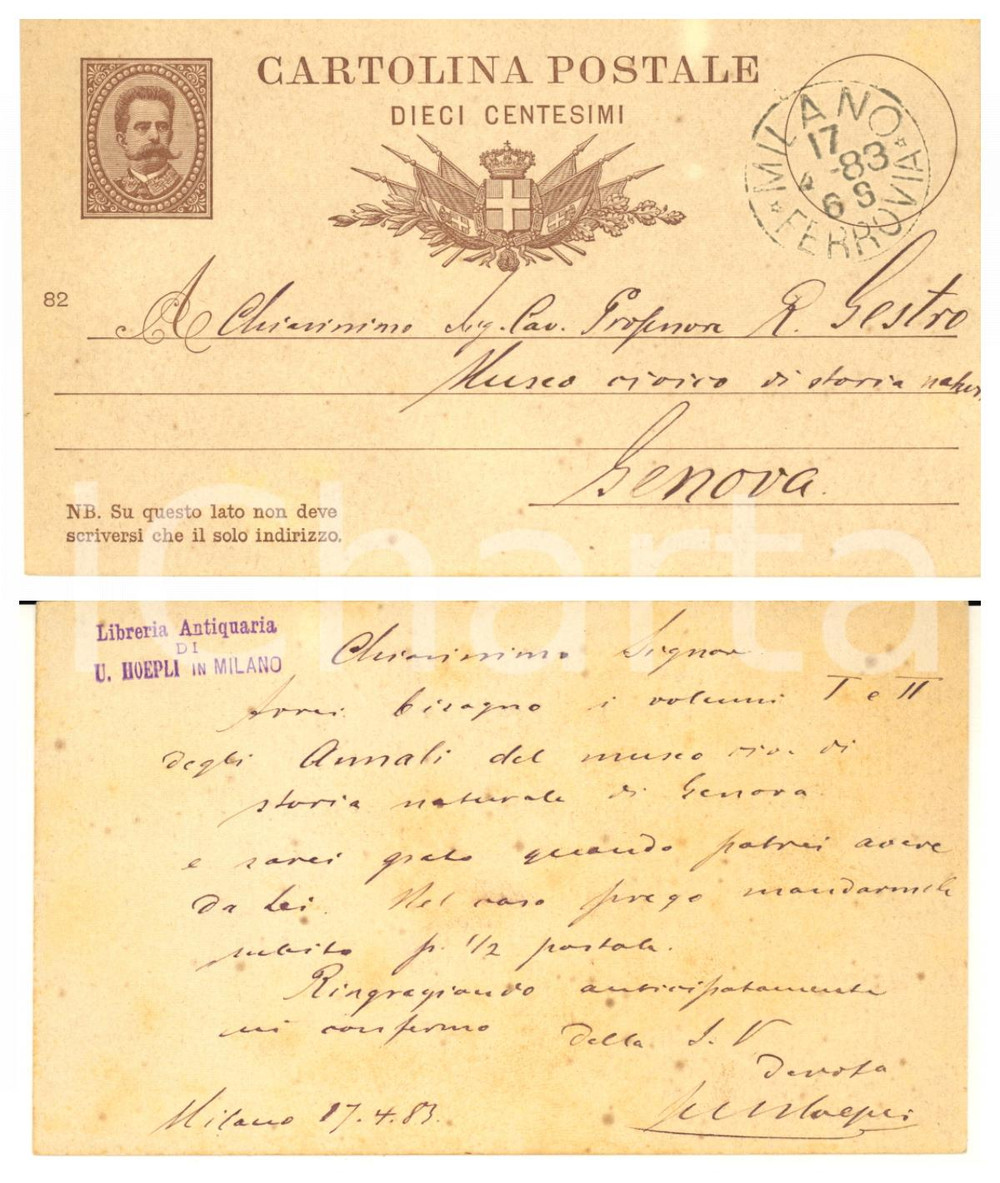 CARTOLINA POSTALE
DIECI CENTESIMI
MILANO
17
4-83
6 S
FERROVIA
82
A Chiarissimo Sig. Cav. Professore R. Gestro
Museo civico di storia natur.
Genova.
NB. Su questo lato non deve
scriversi che il solo indirizzo.
Libreria Antiquaria
DI
U. HOEPLI IN MILANO
Chiarissimo Signor
Avrei bisogno i volumi I e II
degli Annali del museo civ. di
storia naturale di Genova
e sarei grato quando potrei avere
da Lei. Nel caso prego mandarmeli
subito p. 1/2 postale.
Ringraziando anticipatamente
mi confermo della S.V
devoto
Milano 17.4.83. U Hoepli
iCharta